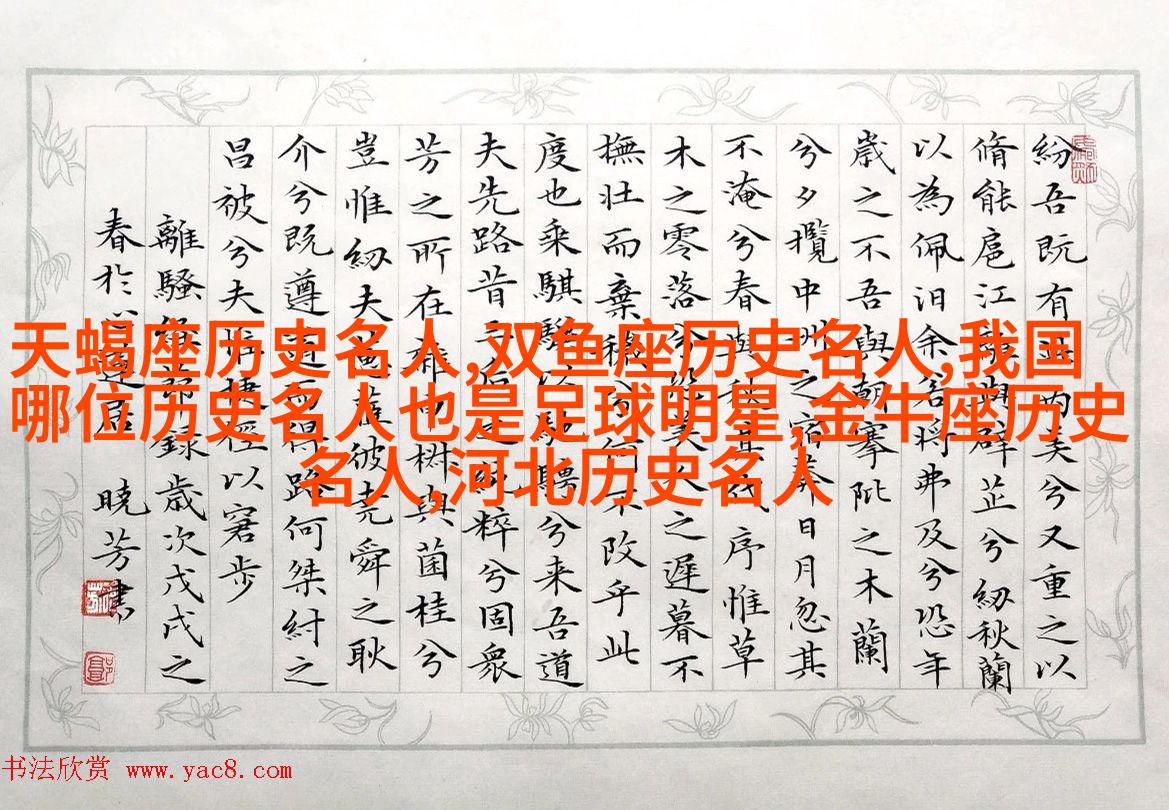 天蝎座历史名人,双鱼座历史名人,我国
哪位历史名人也是足球明星,金牛座历史
名人,河北历史名人
紛吾既有内美兮又重之以
脩能扈江離與辟芷兮紉秋蘭
以為佩汨余若將弗及兮恐年
歲之不吾與朝搴阰之木蘭
兮夕攬中州之宿莽日月忽其
不淹兮春與秋其代序惟草
木之零落兮恐美人之遲暮不
撫壯而棄穢兮何不改乎此
度也乘騏驥以馳騁兮来吾道
夫先路昔三后之純粹兮固衆
芳之所在雜申椒與菌桂兮
豈惟紉夫蕙茝彼堯舜之耿
介兮既遵道而得路何桀紂之
昌被兮夫唯捷徑以窘步
離騷經節錄歲次戊戌之
春於心遠居 曉芳書
书法欣赏 www.yac8.com